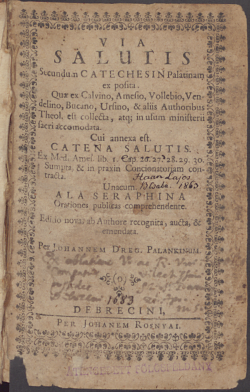 VIA
SALUTIS
Secundum CATECHESIN Palatinam
ex posita.
Quæ ex Calvino, Amesio, Vollebio, Ven-
delino, Bucano, Ursino, & aliis Authoribus
Theol. est collecta, atq; in usum ministerii
sacri accomodata.
Cui annexa est.
CATENA SALUTIS.
Ex Med. Ames. lib. 1. Cap. 26. 27. 28. 29. 30.
Sumpta, & in praxin Concionatoriam con-
tracta.
Unacum
ALA SERAPHINA
Orationes publicas comprehendente.
Editio nova ab Authore recognita, aucta, &
emendata.
Per JOHANNEM DREG. PALANKINUM.
1683
DEBRECINI,
PER JOHANEM ROSNYAI.